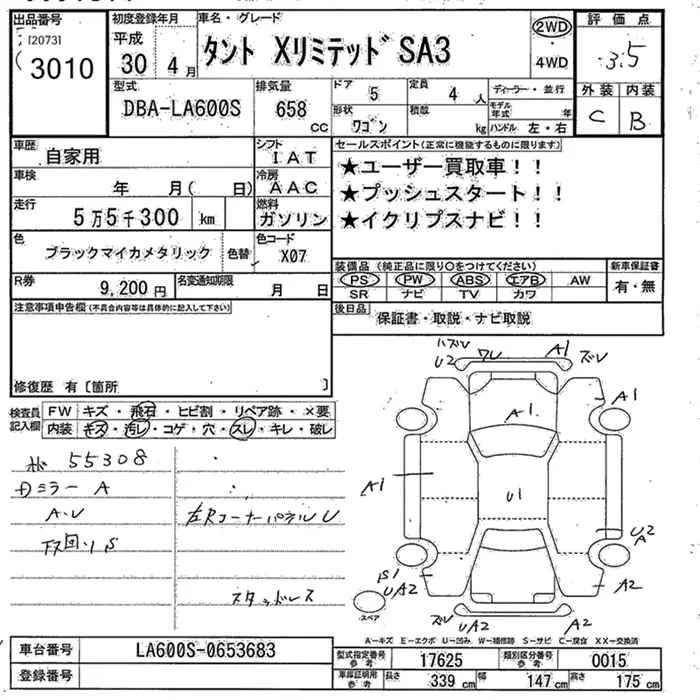 出品番号
[2073]
3010
初度登録年月
平成
30年 4月
車名・グレード
タント XリミテッドSA3
2WD
・
4WD
評価点
3.5
外装 内装
C B
型式
DBA-LA600S
排気量
658
cc
ドア 5
定員 4人
形状 ワゴン
積載 kg
ディーラー・並行
モデル年式 年
ハンドル 左・右
車歴 自家用
シフト IAT
車検 年 月( 日)
冷房 AAC
走行 5万5千300 km
燃料 ガソリン
色 ブラックマイカメタリック 色替
色コード X07
R券 9,200円
名変通知期限 月 日
セールスポイント(正常に機能するものに限ります)
★ユーザー買取車!!
★プッシュスタート!!
★イクリプスナビ!!
装備品(純正品に限り○をつけてください)
PS PW ABS エアB AW
SR ナビ TV カワ
新車保証書
有・無
後日品 保証書・取説・ナビ取説
注意事項申告欄(不具合内容等は具体的に記入して下さい)
修復歴 有〔箇所 〕
検査員記入欄
FW キズ・飛石・ヒビ割・リペア跡・×要
内装 キズ・汚レ・コゲ・穴・スレ・キレ・破レ
55308
ミラー A
A.U
S
左Rコーナーパネル U
スタッドレス
ハズレ
U2
ワレ
A1
ズレ
A1
A1
A1
U1
UA2
S1
UA2
A2
スペア
ズレ
UA2
A2
A-キズ E-エクボ U-凹み W-補修跡 S-サビ C-腐食 XX-交換済
車台番号 LA600S-0653683
登録番号
型式指定番号 参考 17625
類別区分番号 参考 0015
車庫証明用 参考 長さ 339cm 幅 147cm 高さ 175cm